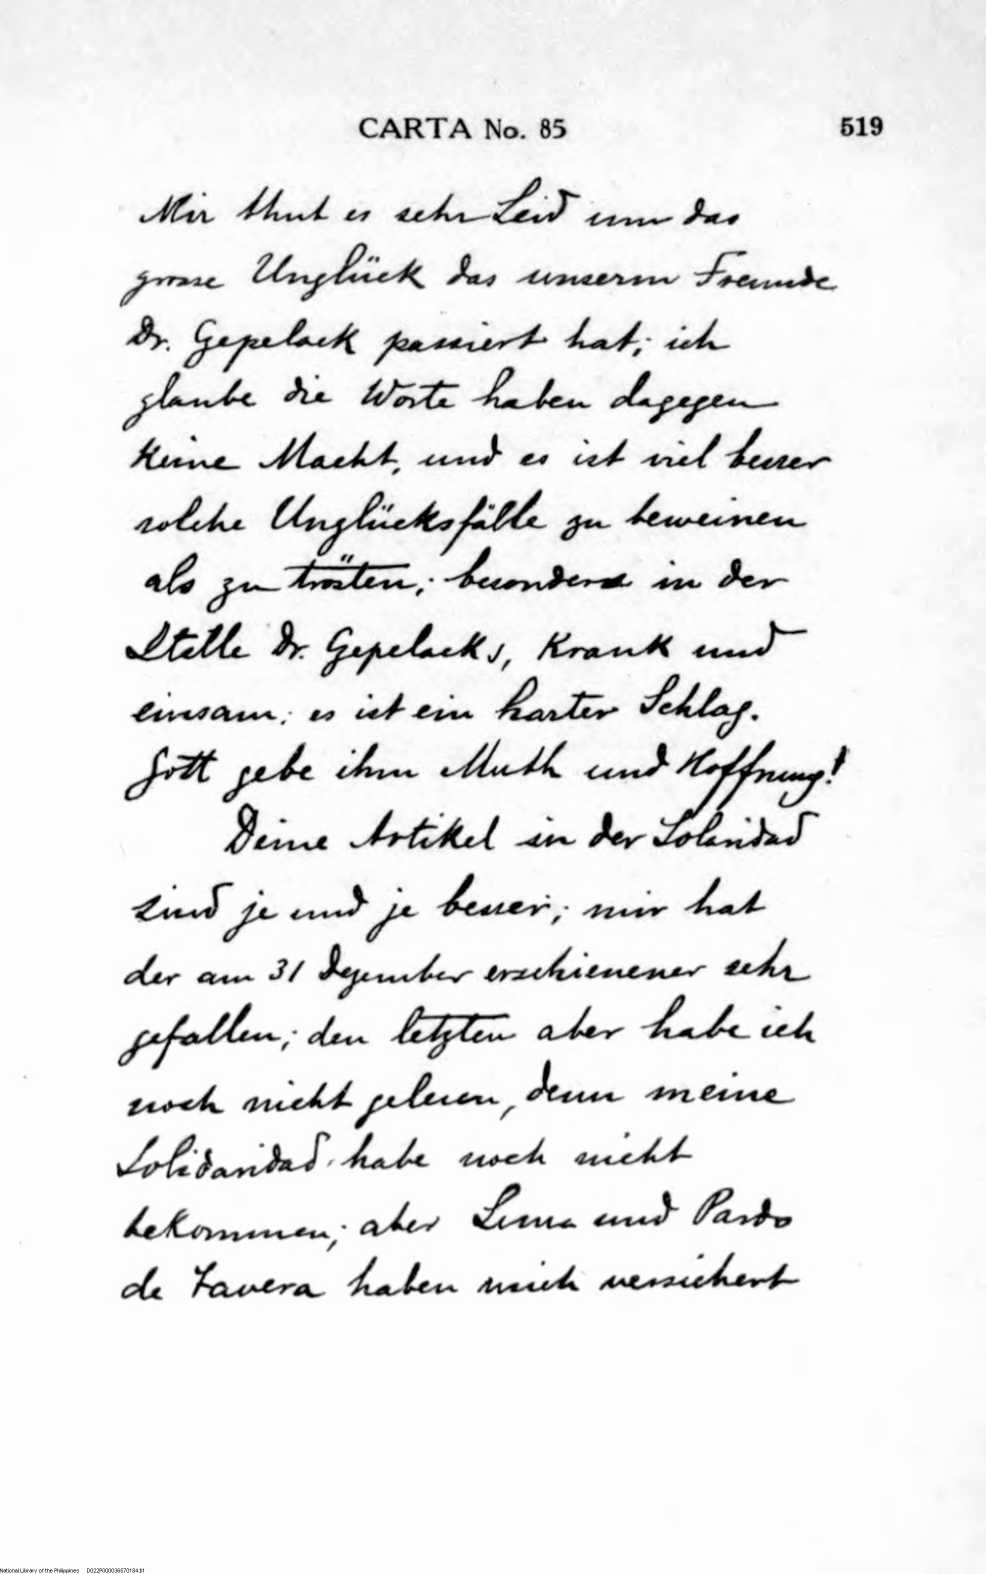 CARTA No. 85 519
Mir thut es sehr Leid um das
grosse Unglück das unserm Freunde
Dr. Gepelack passiert hat; ich
glaube die Worte haben dagegen
keine Macht, und es ist viel besser
solche Unglücksfälle zu beweinen
als zu trösten; besonders in der
Stelle Dr. Gepelacks, Krank und
einsam; es ist ein harter Schlag.
Gott gebe ihm Muth und Hoffnung!
Deine Artikel in der Solaridad
sind je und je besser; mir hat
der am 31 Dezember erschienener sehr
gefallen; den letzten aber habe ich
noch nicht gelesen, denn meine
Solidaridad habe noch nicht
bekommen; aber Luna und Pardo
de Tavera haben mich versichert
National Library of the Philippines